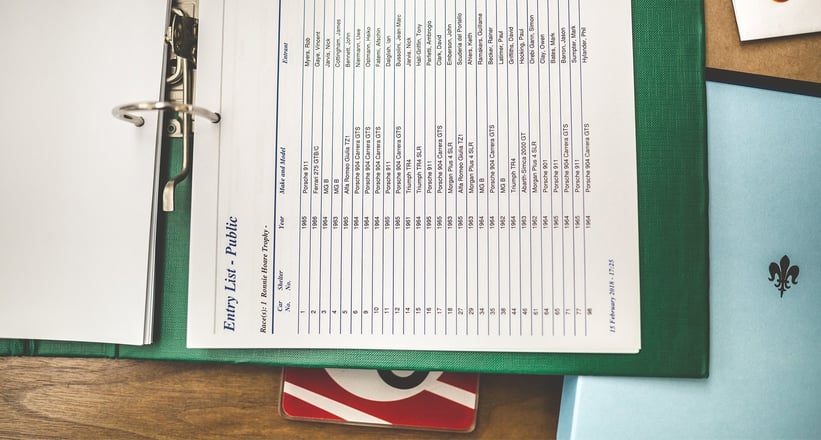 Entry List - Public
Race(s): 1 Ronnie Hoare Trophy -
Car No. Shelter No. Year Make and Model Entrant
1 1965 Porsche 911 Myers, Rob
2 1966 Ferrari 275 GTB/C Gaye, Vincent
3 1964 MG B Jarvis, Nick
4 1963 MG B Cottingham, James
5 1965 Alfa Romeo Giulia TZ1 Bennett, John
6 1964 Porsche 904 Carrera GTS Niermann, Uwe
9 1964 Porsche 904 Carrera GTS Ostmann, Heiko
10 1964 Porsche 904 Carrera GTS Fatemi, Afschin
11 1965 Porsche 911 Dalglish, Ian
12 1965 Porsche 904 Carrera GTS Bussolini, Jean-Marc
14 1961 Triumph TR4 Jarvis, Nick
15 1964 Triumph TR4 SLR Hall-Griffin, Tony
16 1965 Porsche 911 Perfetti, Ambrogio
17 1965 Porsche 904 Carrera GTS Clark, David
18 1963 Morgan Plus 4 SLR Emberson, John
27 1965 Alfa Romeo Giulia TZ1 Scuderia del Portello
29 1963 Morgan Plus 4 SLR Ahlers, Keith
34 1964 MG B Ramakers, Guillame
35 1964 Porsche 904 Carrera GTS Becker, Rainer
38 1962 MG B Latimer, Paul
44 1964 Triumph TR4 Griffiths, David
46 1963 Abarth-Simca 2000 GT Hooking, Paul
61 1962 Morgan Plus 4 SLR Orebi Gann, Simon
64 1964 Porsche 901 Clay, Owen
65 1965 Porsche 911 Bates, Mark
71 1964 Porsche 904 Carrera GTS Barron, Jason
77 1965 Porsche 911 Sumpter, Mark
98 1964 Porsche 904 Carrera GTS Hylander, Phil
15 February 2018 - 17:25